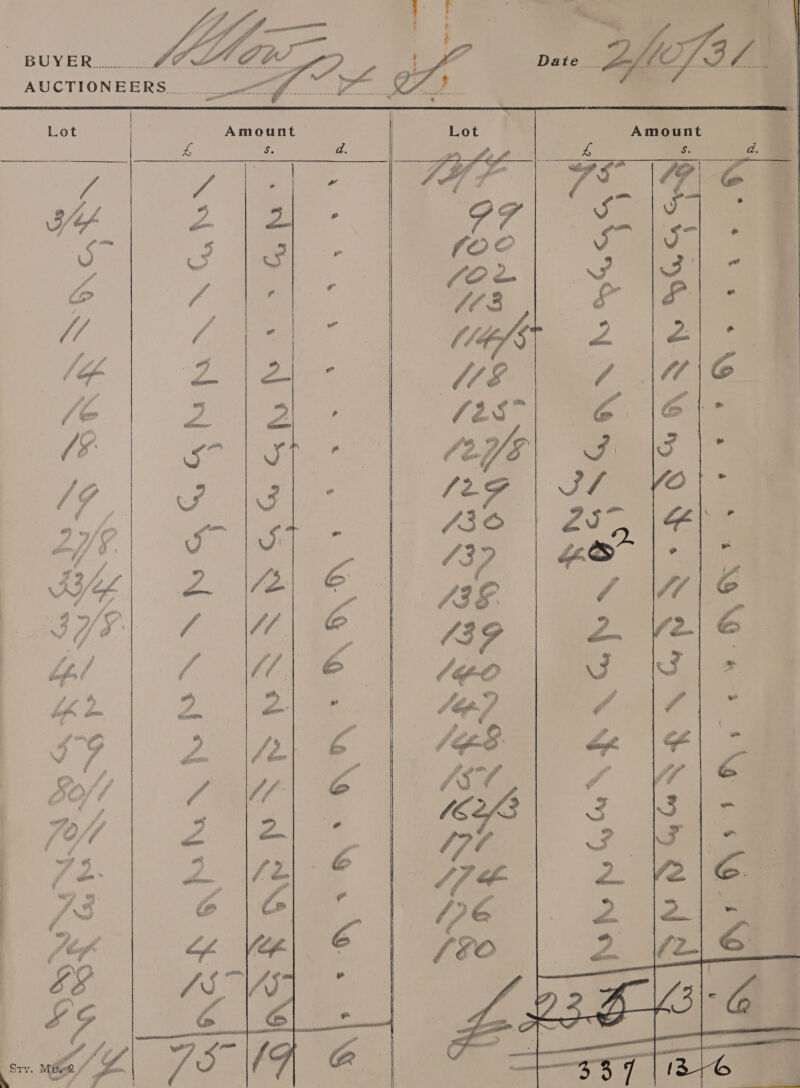 BUYER
Date 2/10/31
AUCTIONEERS
Lot Amount
£ s. d.
1 1 - -
3/4 2 2 -
5 3 3 -
6 1 - -
11 1 - -
14 2 2 -
16 2 2 -
18 5 5 -
19 3 3 -
27/8 5 5 -
33/4 2 12 6
37/8 1 11 6
41 1 11 6
42 2 2 -
59 2 12 6
1 11 6
2 2 -
72 2 12 6
73 6 6 -
74 4 14 6
88 15 15 -
89 6 6 -
75 19 6
Lot Amount
£ s. d.
75 19 6
99 5 5 -
100 5 5 -
102 3 3 -
113 8 8 -
114/5 2 2 -
118 1 11 6
125 6 6 -
127/8 3 3 -
129 31 10 -
130 25 4 -
137 - -
138 1 11 6
139 2 12 6
140 3 3 -
147 1 1 -
148 4 4 -
151 1 11 6
162/3 3 3 -
171 3 3 -
174 2 12 6
176 2 2 -
180 2 12 6
13 - 6
337 13 - 6